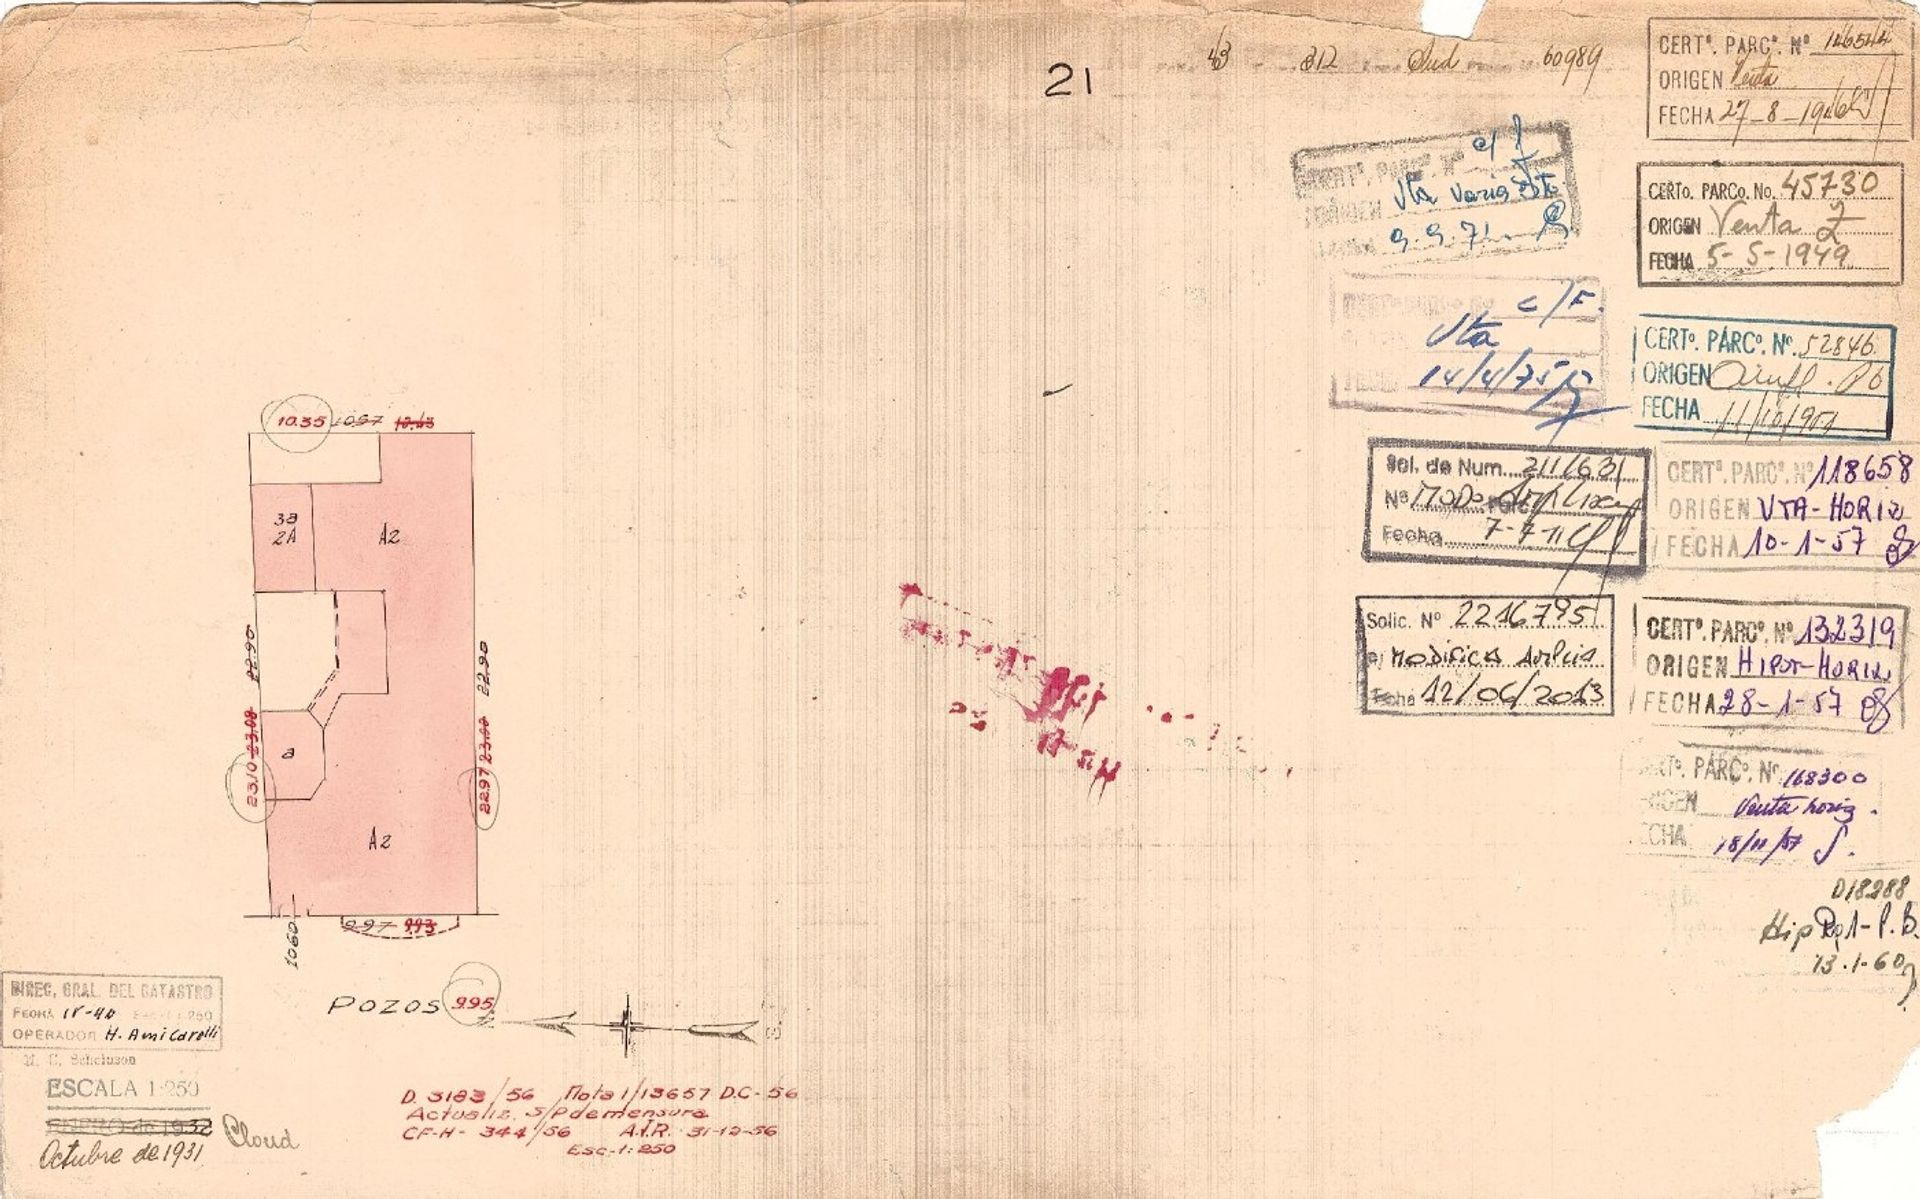 21
43 312 Sud 60989
CERTº. PARCº. Nº 146544
ORIGEN Venta
FECHA 27-8-1946
CERTº. PARCº. Nº c/f
ORIGEN Vta varias
9.9.71
CERTo. PARCo. No. 45730
ORIGEN Venta
FECHA 5-5-1949
c/F.
Vta
14/4/75
CERTº. PÁRCº. Nº. 52846
ORIGEN
FECHA 11/10/951
Sol. de Num. 211631
Nº
Fecha 7-7-11
CERTº. PARCº. Nº 118658
ORIGEN VTA-HORIZ
FECHA 10-1-57
Solic. Nº 2216795
Modifica Amplia
Fecha 12/06/2013
CERTº. PARCº. Nº 132319
ORIGEN HIPOT-HORIZ.
FECHA 28-1-57
CERTº. PÁRCº. Nº 168300
ORIGEN Venta horiz.
FECHA 18/11/57
D18288
Hip P.B.
13.1-60
10.35 10.97 10.43
3a
2A
A2
22.90
23.10 23.08
22.90
22.97 23.00
a
A2
9.97 9.93
1060
POZOS 9.95
DIREC. GRAL. DEL CATASTRO
FECHA IV-40 Esc. 1:250
OPERADOR H. Ami Carelli
ESCALA 1:250
ENERO de 1932
Octubre de 1931
Cloud
D. 3183/56 Nota 1/13657 D.C-56
Actualiz. S/P de mensura
CF-H- 344/56 A.I.R. 31-12-56
Esc-1:250